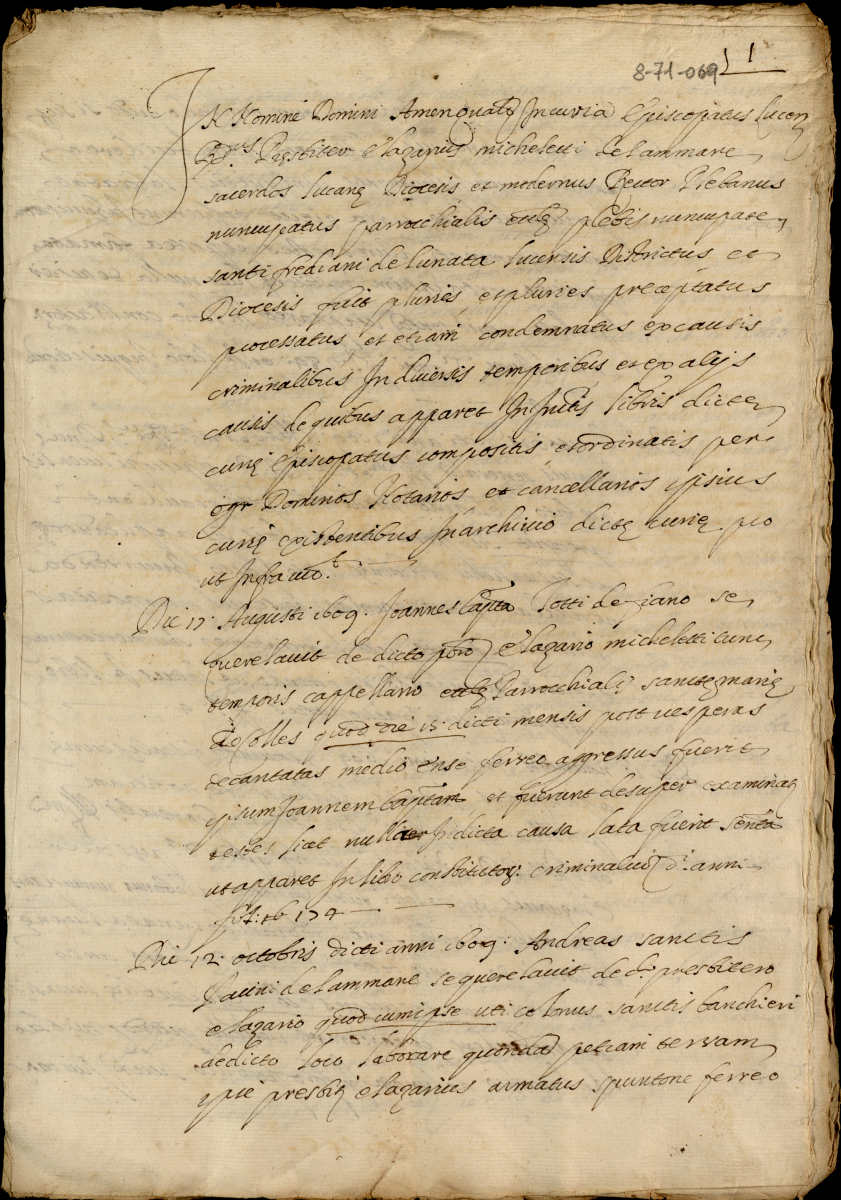 8-71-069 1
In Nomine Domini Amen quatr In curia Episcopatus Lucen
Rdus Presbiter Elazarius micheletti de lammare
sacerdos lucanę Diocesis et modernus Rector Plebanus
nuncupatus parrochialis eccle plebis nuncupate
santi frediani de lunata lucensis Districtus et
Diocesis fuit pluries, et pluries preceptatus
processatus, et etiam condemnatus ex causis
criminalibus In diuersis temporibus et ex alijs
causis de quibus apparet In Infrtis libris dicte
curię Episcopatus compositis et ordinatis per
Dominos Notarios et cancellarios ipsius
curię existentibus In archiuio dictę curię pro
ut Infra
Die 17 Augusti 1609. Joannes bapta Totti de ziano se
querelauit de dicto pbro Elazario micheletti tunc
temporis cappellano eccle Parrochialis sanctę marię
de colles quod die 15 dicti mensis post uesperas
decantatas medio ense ferreo aggressus fuerit
ipsum Joannem baptam et fuerunt desuper examinati
testes licet nulliter In dicta causa lata fuerit senta
ut apparet In libro constitutor criminaliu di anni
174
Die 12 octobris dicti anni 1609: Andreas sanctis
Paúini de lammare se querelauit de do presbitero
elazario quod cum ipse uti colonus sanctis banchieri
de dicto loco laborare quondā petiam terram
ipse presbiter elazarius armatus spuntone ferreo